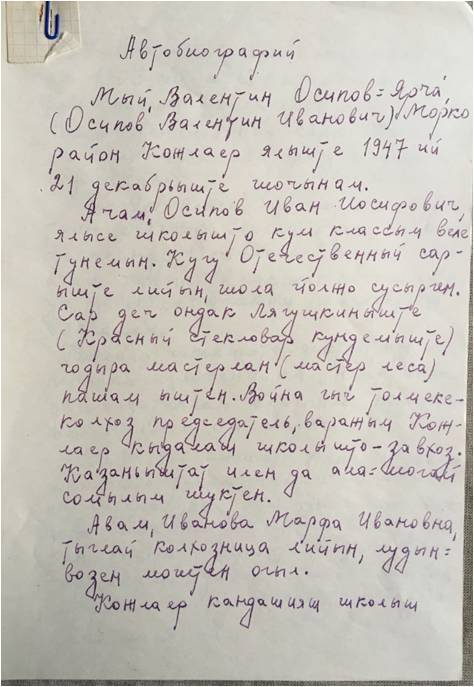 Автобиографий
Мый, Валентин Осипов=Ярча,
(Осипов Валентин Иванович) Морко
район Кожлаер ялыште 1947 ий
21 декабрьыште шочынам.
Ачам, Осипов Иван Иосифович,
ялысе школышто кум классым веле
тунемын. Кугу Отечественный сар-
ыште лийын, шола йолжо сусырген.
Сар деч ондак Лягушкиныште
(Красный стекловар кундемыште)
чодыра мастерлан (мастер леса)
пашам ыштен. Война гыч толмеке-
колхоз председатель, варажым Кож-
лаер кыдалаш школышто-завхоз.
Казаньыштат илен да ала=могай
сомылым шуктен.
Авам, Иванова Марфа Ивановна,
тыглай колхозница лийын, лудын=
возен моштен огыл.
Кожлаер кандашияш школыш